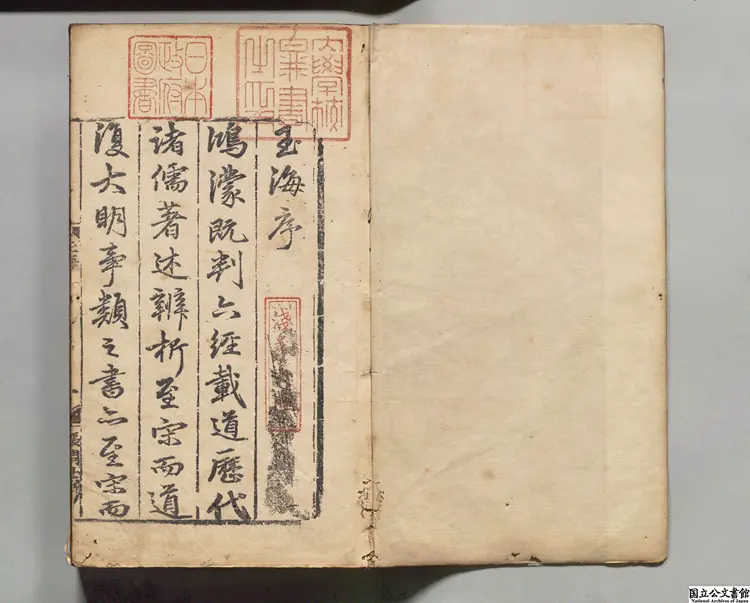 玉海序
鴻濛既判六經載道歷代
諸儒著述辧析至宋而道
復大明事類之書亦至宋而
日本
政府
圖書
大學校
圖書
之印
淺
国立公文書館
National Archives of Japan